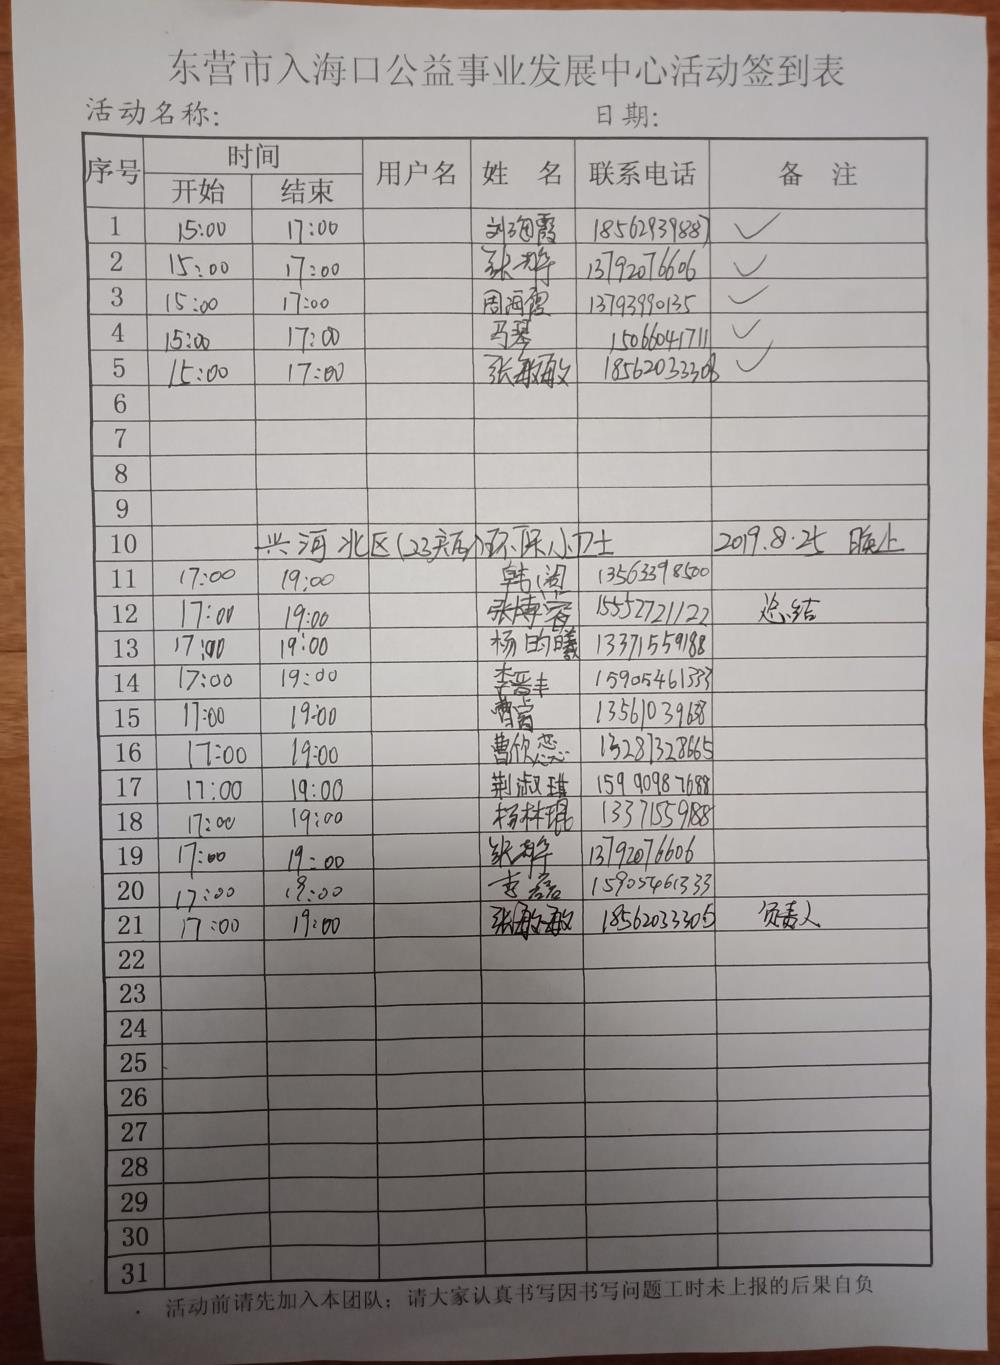 东营市入海口公益事业发展中心活动签到表
活动名称: 日期:
序号 时间 用户名 姓 名 联系电话 备 注
开始 结束
1 15:00 17:00 刘海霞 18562939887 ✓
2 15:00 17:00 张 13792076606 ✓
3 15:00 17:00 周海霞 13793990135 ✓
4 15:00 17:00 马琴 15066041711 ✓
5 15:00 17:00 张敏敏 1856203330 ✓
6
7
8
9
10 兴河北区(23 环保小卫士 2019.8.25 晚上
11 17:00 19:00 韩 13563398500
12 17:00 19:00 张博容 15552721122 总结
13 17:00 19:00 杨昀曦 13371559188
14 17:00 19:00 李晋丰 15905461333
15 17:00 19:00 曹 1356103968
16 17:00 19:00 曹欣 13287328665
17 17:00 19:00 荆淑琪 15990987688
18 17:00 19:00 杨林琨 13371559188
19 17:00 19:00 张 13792076606
20 17:00 19:00 李 15905461333
21 17:00 19:00 张敏敏 18562033305 负责人
22
23
24
25
26
27
28
29
30
31
活动前请先加入本团队；请大家认真书写因书写问题工时未上报的后果自负